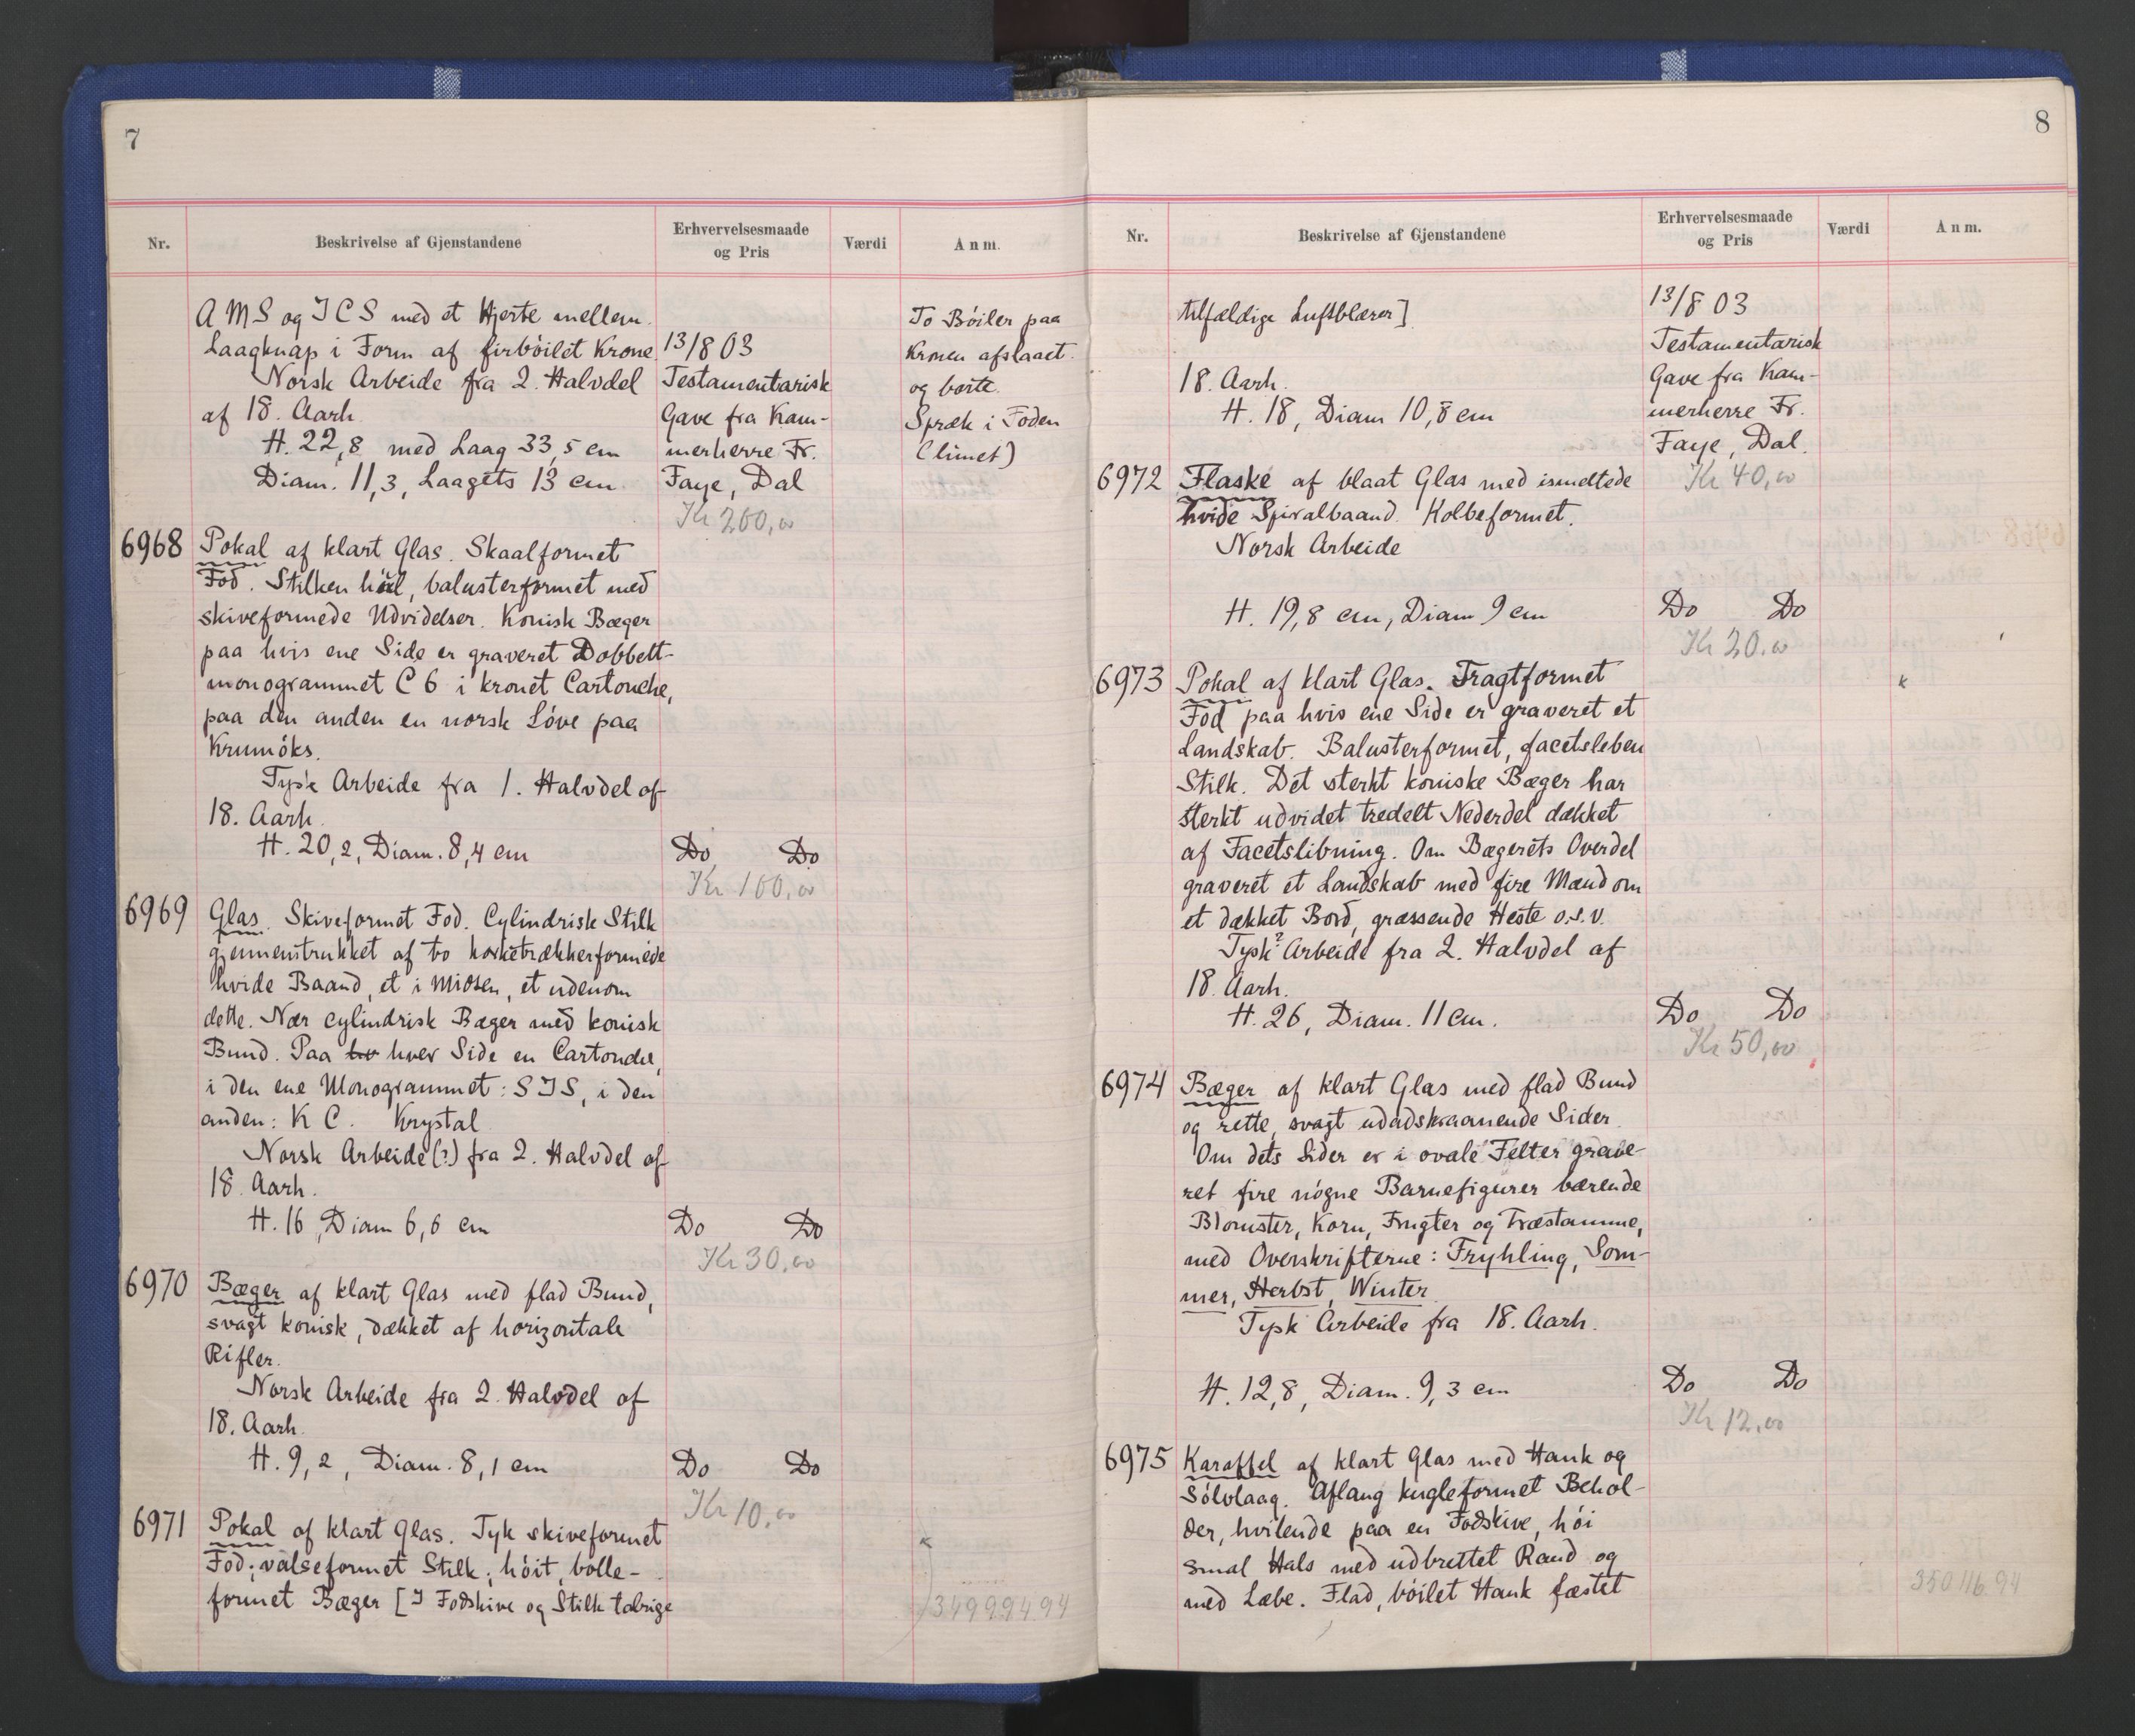 7
Nr.
Beskrivelse af Gjenstandene
Erhvervelsesmaade
og Pris
Værdi
Anm.
AMS og JCS med et Hjerte mellem.
Laagknap i Form af firbøilet Krone
Norsk Arbeide fra 2. Halvdel
af 18. Aarh.
H. 22,8 med Laag 33,5 cm
Diam. 11,3, Laagets 13 cm
13/8 03
Testamentarisk
Gave fra Kam-
merherre Fr.
Faye, Dal
Kr 200,00
To Bøiler paa
Kronen afslaaet
og borte.
Spræk i Foden
(limet)
6968 Pokal af klart Glas. Skaalformet
Fod. Stilken hul, balusterformet med
skiveformede Udvidelser. Konisk Bæger
paa hvis ene Side er graveret Dobbelt-
monogrammet C6 i kronet Cartouche,
paa den anden en norsk Løve paa
Krumøks.
Tysk Arbeide fra 1. Halvdel af
18. Aarh.
H. 20,2, Diam. 8,4 cm Do Do
Kr 100,00
6969 Glas. Skiveformet Fod. Cylindrisk Stilk
gjennemtrukket af to korketrækkerformede
hvide Baand, et i Midten, et udenom
dette. Nær cylindrisk Bæger med konisk
Bund. Paa hver Side en Cartouche,
i den ene Monogrammet: SJS, i den
anden: K C. Krystal
Norsk Arbeide(?) fra 2. Halvdel af
18. Aarh.
H. 16, Diam 6,6 cm Do Do
Kr 30,00
6970 Bæger af klart Glas med flad Bund,
svagt konisk, dækket af horizontale
Rifler.
Norsk Arbeide fra 2. Halvdel af
18. Aarh.
H. 9,2, Diam. 8,1 cm Do Do
Kr 10,00
6971 Pokal af klart Glas. Tyk skiveformet
Fod; valseformet Stilk; høit, bolle-
formet Bæger [I Fodskive og Stilk talrige
3499994.94
8
Nr.
Beskrivelse af Gjenstandene
Erhvervelsesmaade
og Pris
Værdi
Anm.
tilfældige Luftblærer]
18. Aarh.
H. 18, Diam 10,8 cm
13/8 03
Testamentarisk
Gave fra Kam-
merherre Fr.
Faye, Dal.
Kr 40,00
6972 Flaske af blaat Glas med ismeltede
hvide Spiralbaand. Kolbeformet.
Norsk Arbeide
H. 19,8 cm, Diam 9 cm Do Do
Kr 20.00
6973 Pokal af klart Glas. Tragtformet
Fod paa hvis ene Side er graveret et
Landskab. Balusterformet, facetsleben
Stilk. Det sterkt koniske Bæger har
sterkt udvidet tredelt Nederdel dækket
af Facetslibning. Om Bægerets Overdel
graveret et Landskab med fire Mænd om
et dækket Bord, græssende Heste o.s.v.
Tysk? Arbeide fra 2. Halvdel af
18. Aarh.
H. 26, Diam. 11 cm. Do Do
Kr 50,00
6974 Bæger af klart Glas med flad Bund
og rette, svagt udadskraanende Sider.
Om dets Sider er i ovale Felter grave-
ret fire nøgne Barnefigurer bærende
Blomster, Korn, Frugter og Træstamme,
med Overskrifterne: Fryhling, Som-
mer, Herbst, Winter
Tysk Arbeide fra 18. Aarh.
H. 12,8, Diam. 9,3 cm Do Do
Kr 12,00
6975 Karaffel af klart Glas med Hank og
Sølvlaag. Aflang kugleformet Behol-
der, hvilende paa en Fodskive, høi
smal Hals med udbrettet Rand og
med Læbe. Flad, bøilet Hank fæstet
350 116.94